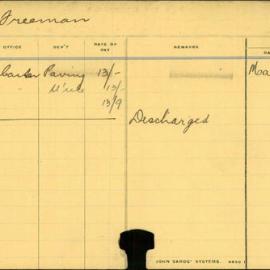 Freeman
OFFICE DEP'T RATE OF PAY REMARKS DA
Paving 13/- Moa
13/-
13/9
Discharged
JOHN SANDS' SYSTEMS.